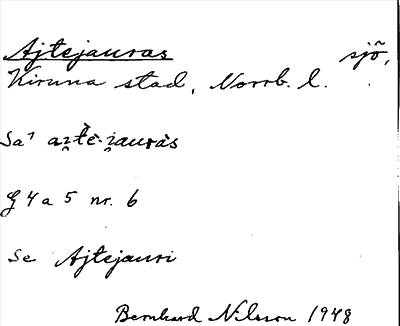 Ajtejauras sjö,
Kiruna stad, Norrb. l.
Sa⁷
G 4 a 5 nr. 6
Se Ajtejauri
Bernhard Nilsson 1948